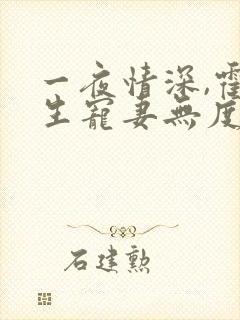 一夜情深,霍
生寵妻無度
石建勳